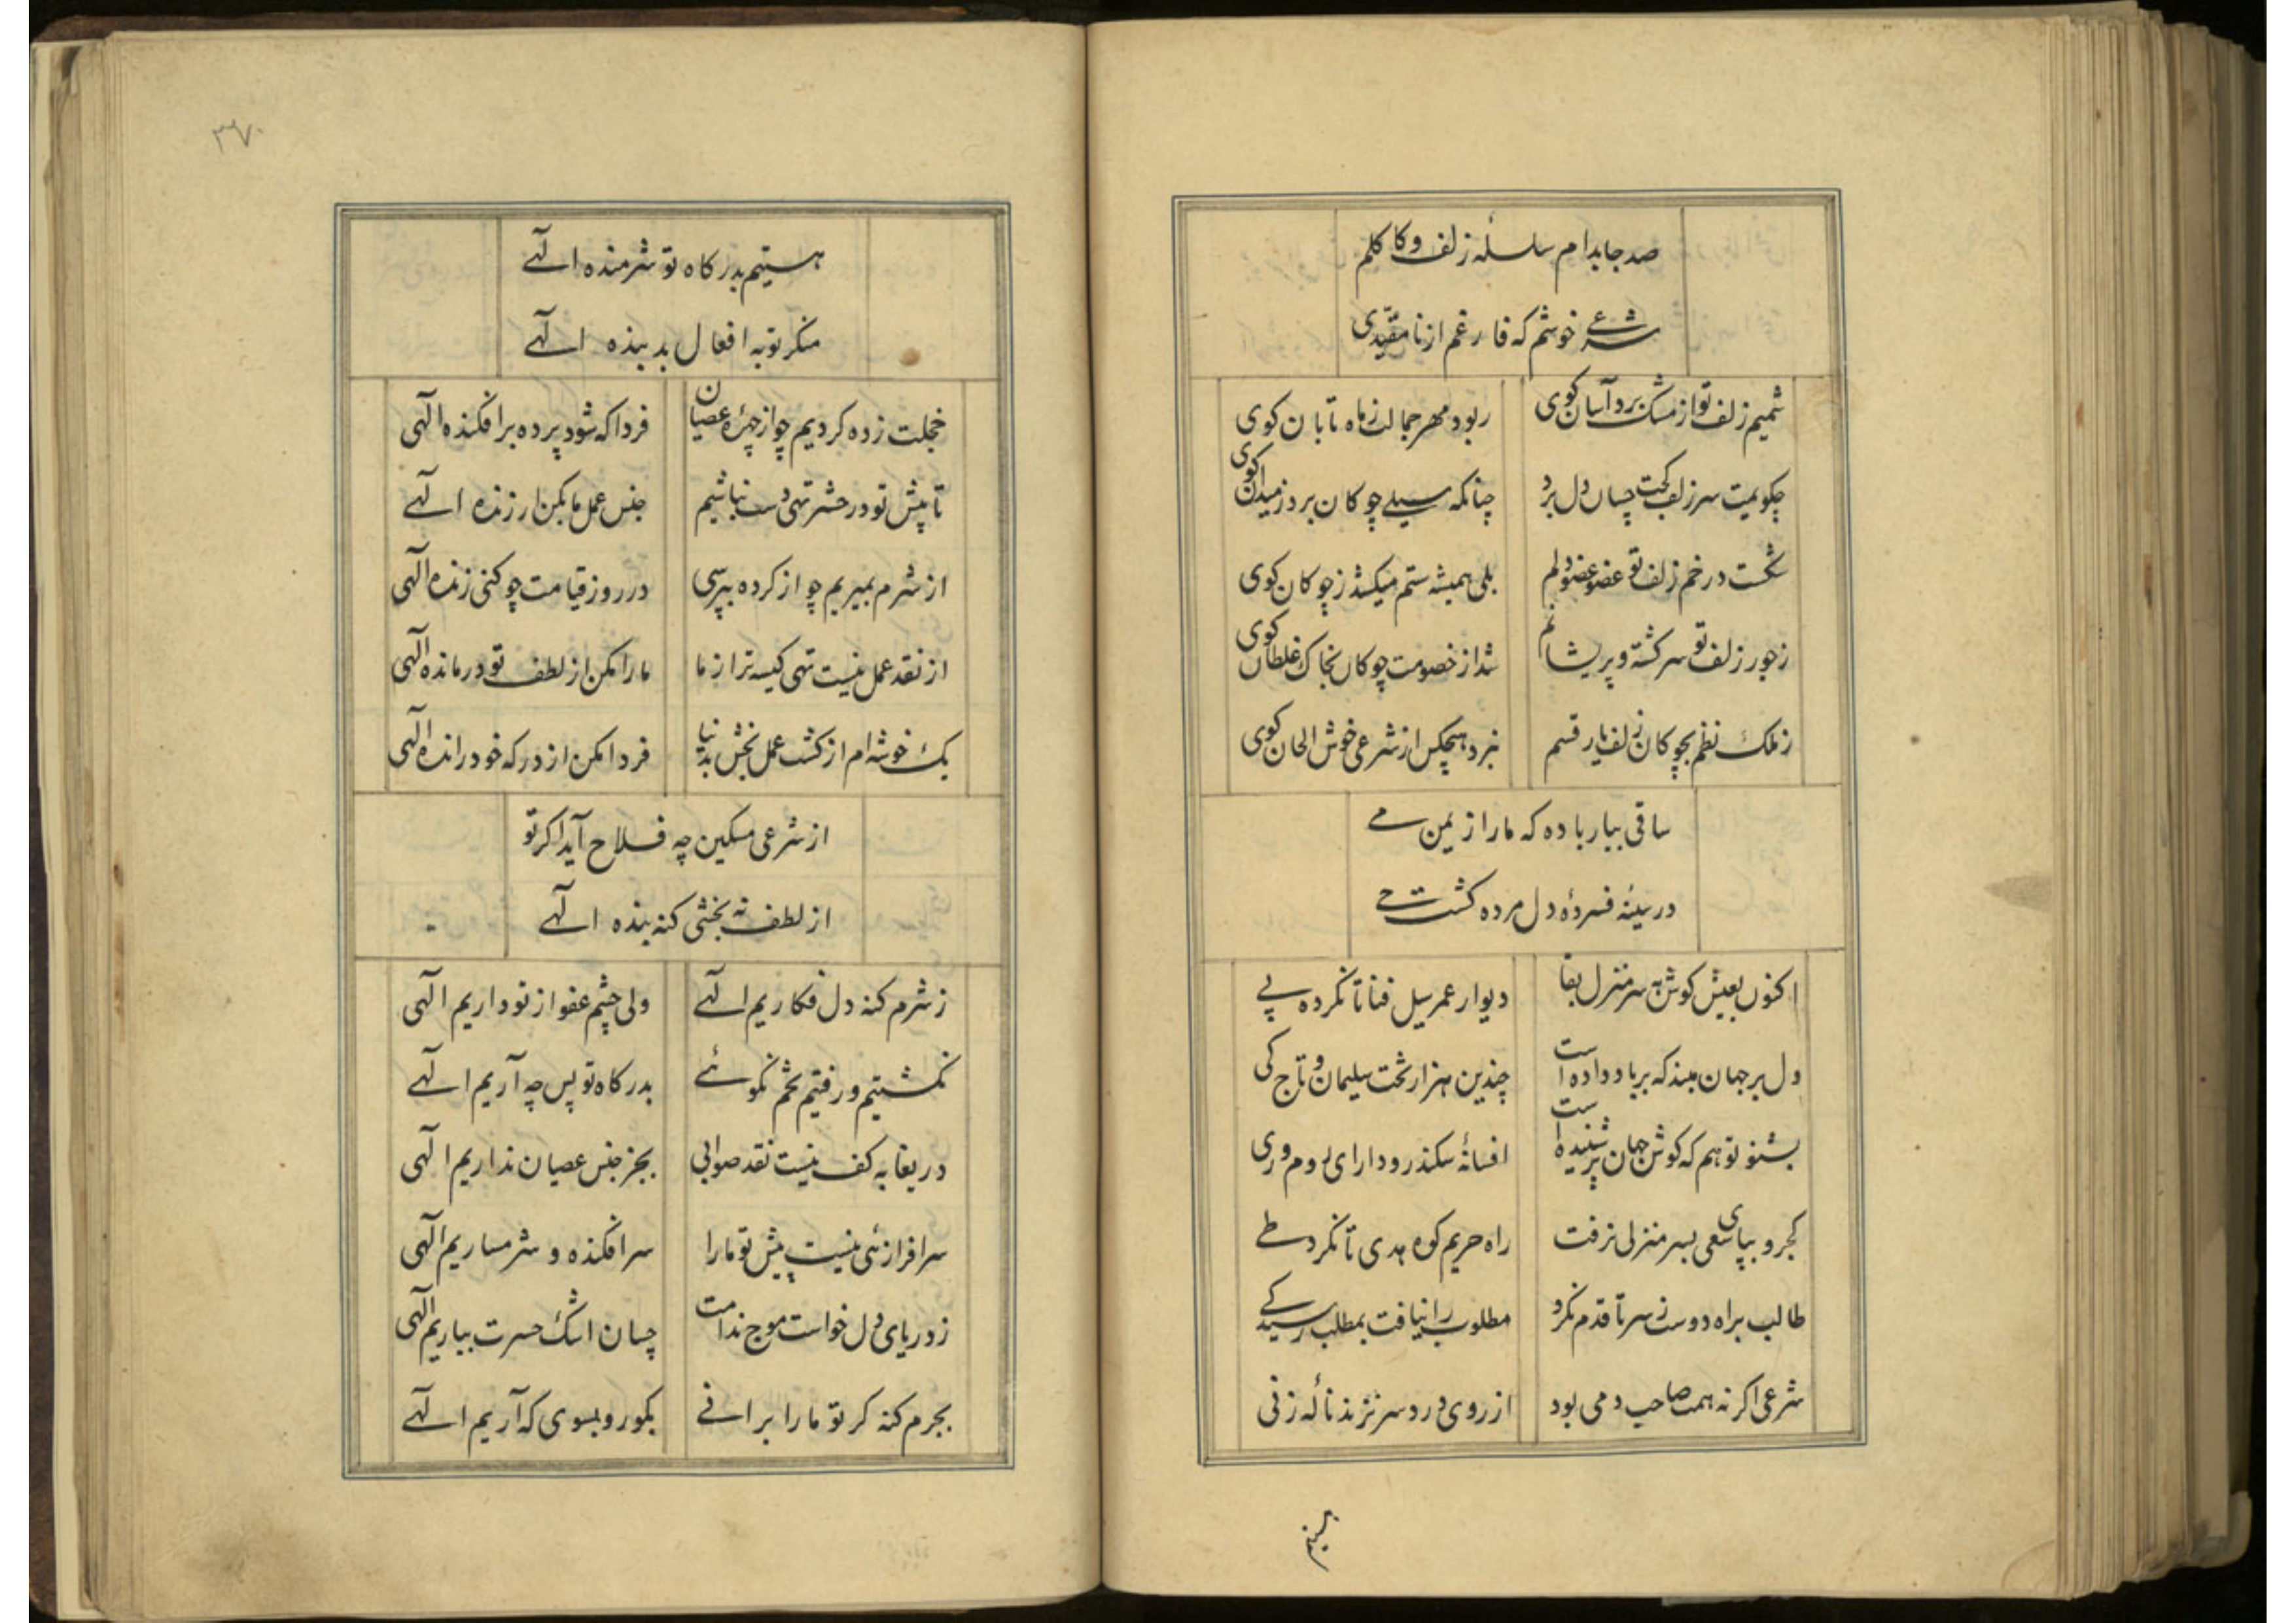 صد جا بدام سلسلهٔ زلف و کاکلم
شرعی خوشم که فارغم از نامقیدی
شمیم زلف تو از مشک برد آسان کوی ربود مهر جمالت ز ماه تابان کوی
چکویمت سر زلف کجت چسان دل برد چنانکه سیلی چوکان برد ز میدان کوی
شکست در خم زلف تو عضو عضو دلم بلی همیشه ستم میکشد ز چوکان کوی
ز جور زلف تو سرکشته و پریشانم شد از خصومت چوکان بخاک غلطان کوی
ز ملک نظم بچوکان زلف یار قسم نبرد هیچکس از شرعی خوش الحان کوی
ساقی بیار باده که ما را ز یمن می
در سینهٔ فسردهٔ دل مرده کشت حی
اکنون بعیش کوش به سر منزل بقا دیوار عمر سیل فنا تا نکرده پی
دل بر جهان مبند که بر باد داده است چندین هزار تخت سلیمان و تاج کی
بشنو تو هم که کوش جهان پر شنیده است افسانهٔ سکندر و دارای روم و ری
کجرو بپای سعی بسر منزلی نرفت راه حریم کوه هدی تا نکرد طی
طالب براه دوست ز سر تا قدم نکرد مطلوب را نیافت بمطلب رسید کی
شرعی اکر نه همت صاحب دمی بود از روی درد سر نزند نالهٔ زنی
۳۷۰
هستیم بدرکاه تو شرمنده الهی
منکر تو به افعال بد بنده الهی
خجلت زده کردیم چو از چهرهٔ عصیان فردا که شود پرده برافکنده الهی
تا پیش تو در حشر تهی دست نباشیم جنس عمل ما بکن ارزنده الهی
از شرم بمیریم چو از کرده بپرسی در روز قیامت چو کنی زنده الهی
از نقد عمل نیست تهی کیسه‌تر از ما ما را مکن از لطف تو درمانده الهی
یک خوشه‌ام از کشت عمل بخش بدنیا فردا مکن از درکه خود رانده الهی
از شرعی مسکین چه فلاح آید اکر تو
از لطف نه بخشی کنه بنده الهی
ز شرم کنه دل فکاریم الهی ولی چشم عفو از تو داریم الهی
نکشتیم و رفتیم تخم نکوئی بدرکاه تو پس چه آریم الهی
دریغا به کف نیست نقد صوابی بجز جنس عصیان نداریم الهی
سرافرازئی نیست پیش تو ما را سرافکنده و شرمساریم الهی
ز دریای دل خواست موج ندامت چسان اشک حسرت بباریم الهی
بجرم کنه کر تو ما را برانی بکو رو بسوی که آریم الهی